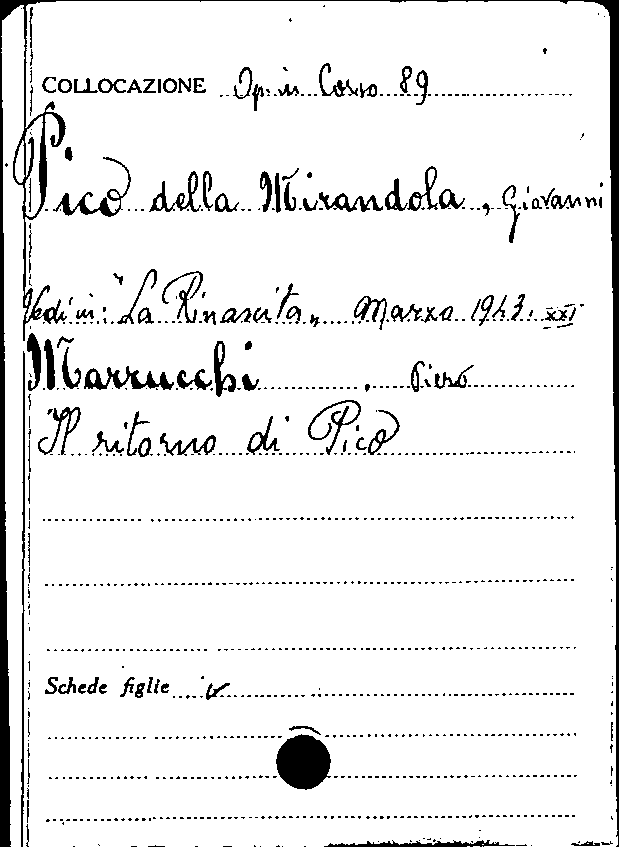 COLLOCAZIONE Op. in Corso 89
Pico della Mirandola, Giovanni
Vedi in: "La Rinascita„ Marzo 1943. XXI
Marrucchi Piero
Il ritorno di Pico
Schede figlie